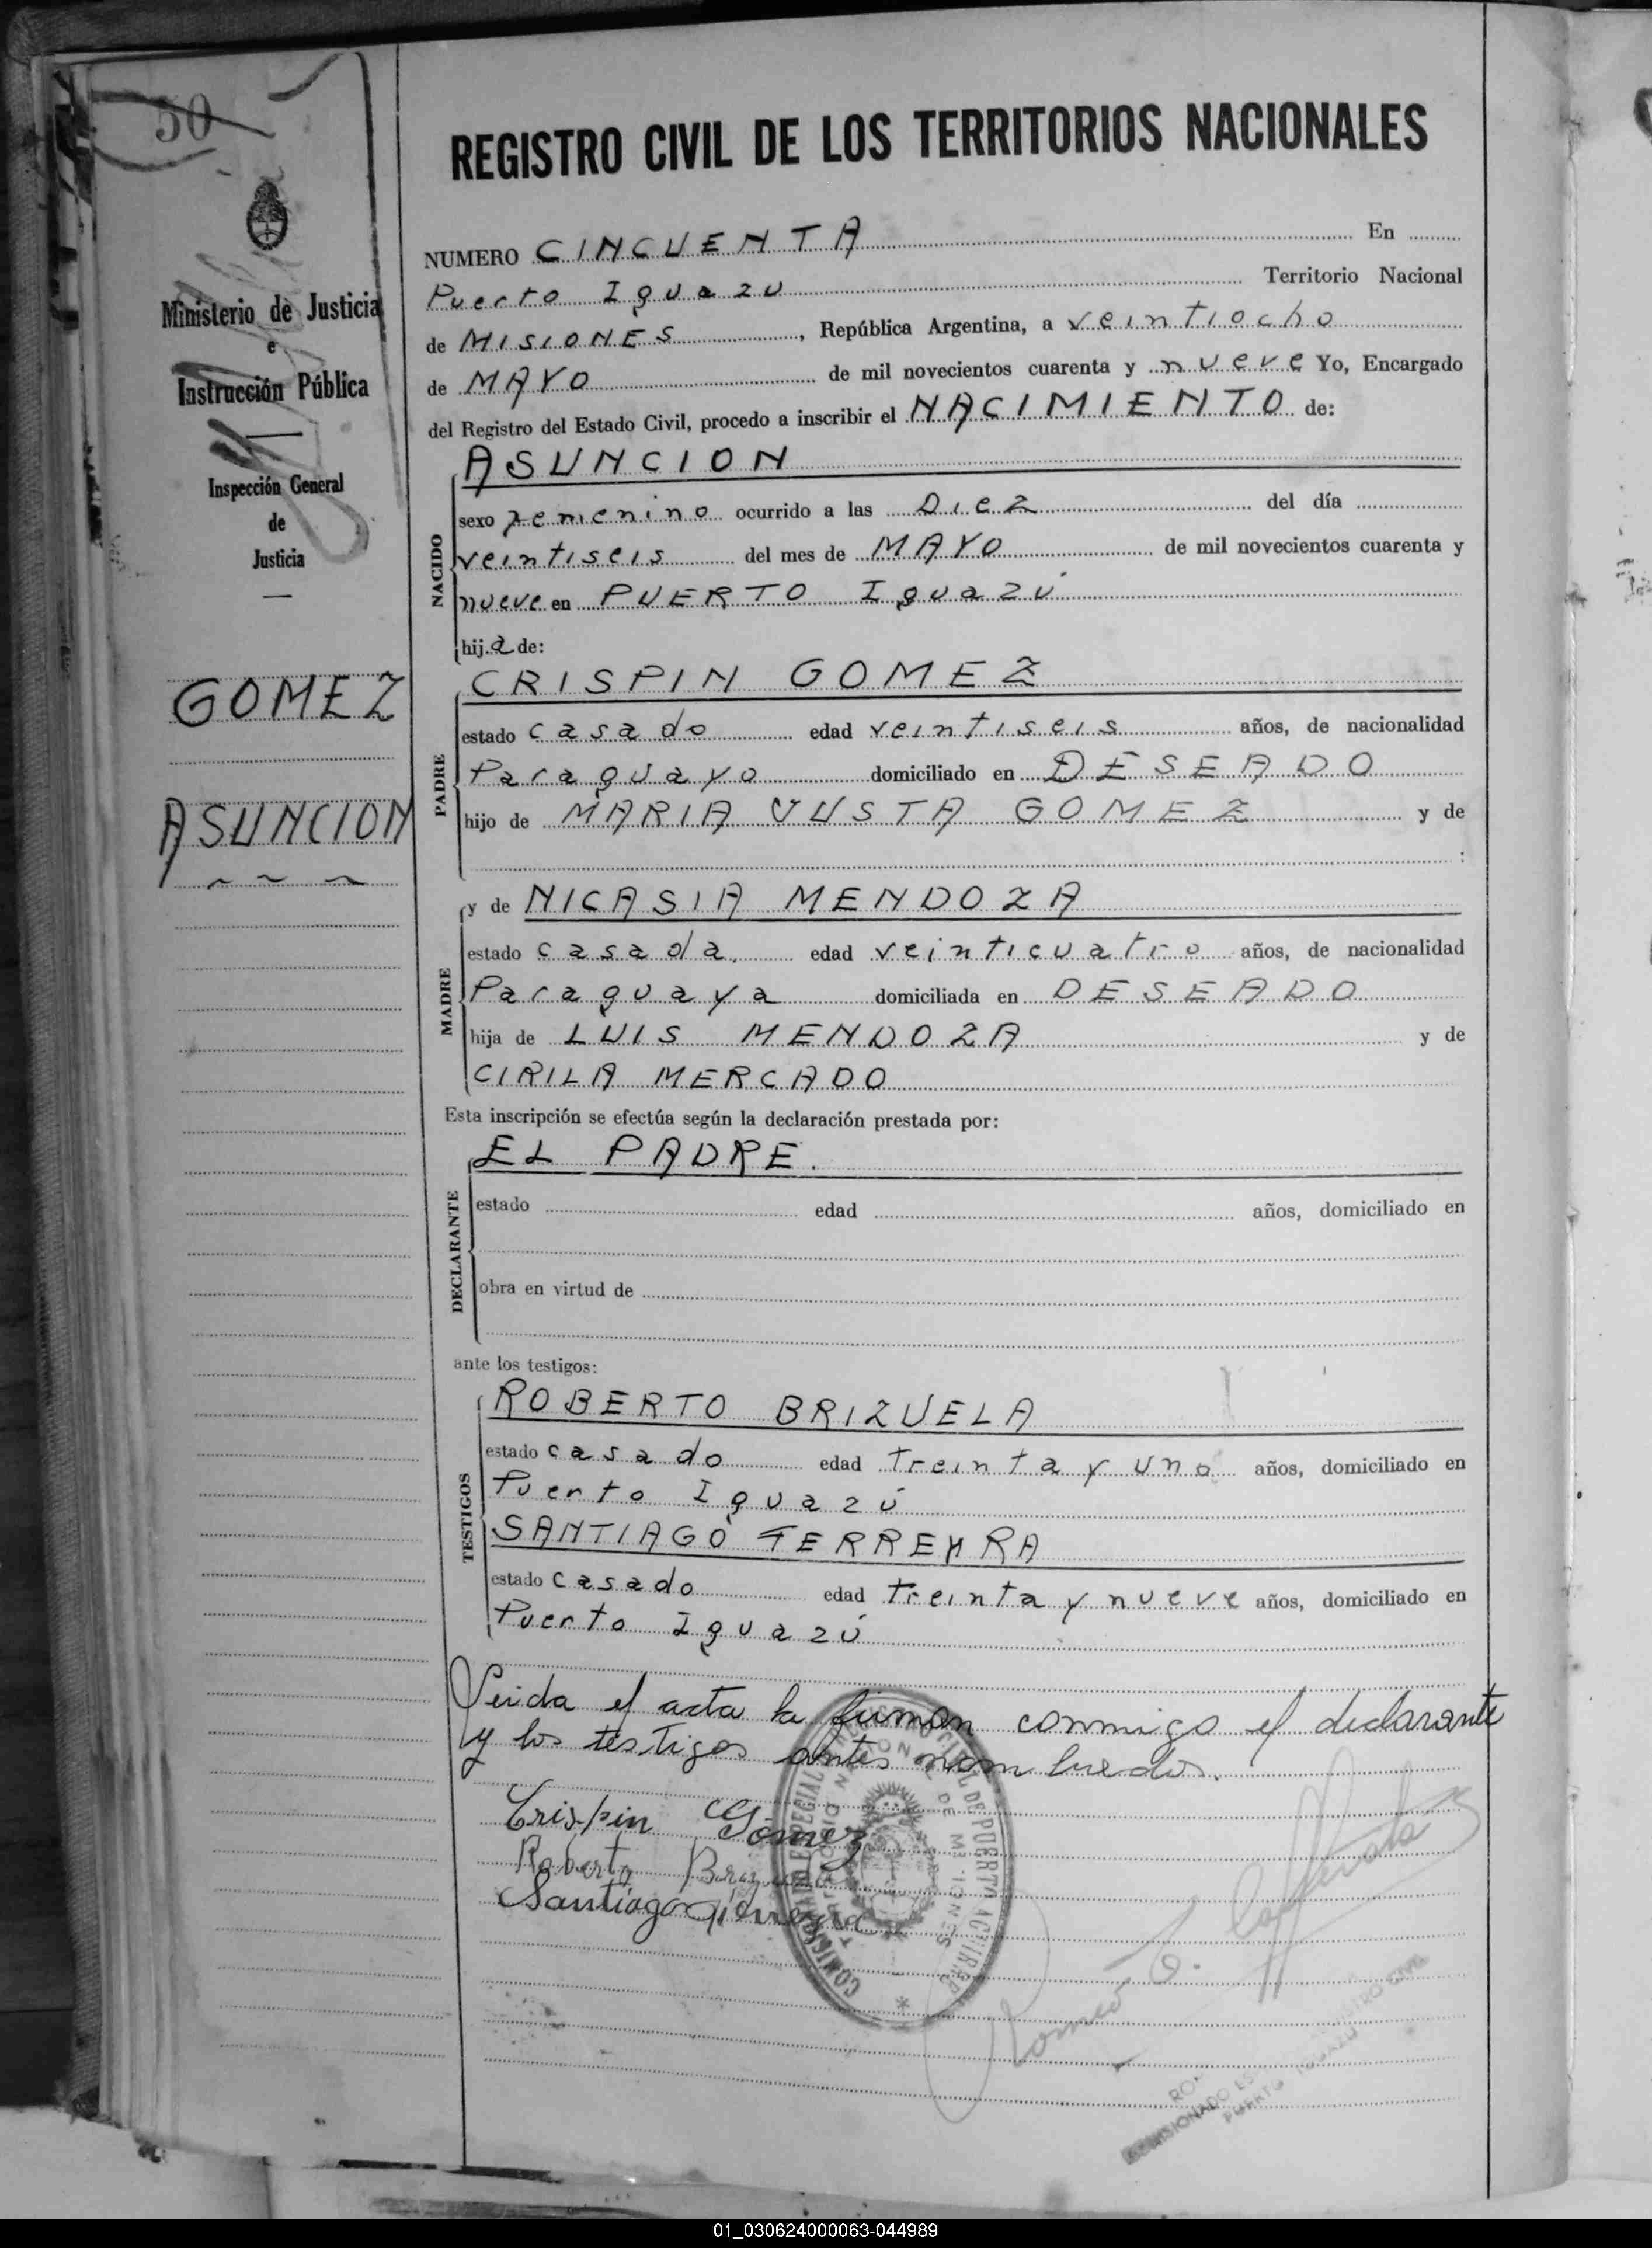 50
Ministerio de Justicia
e
Instrucción Pública
Inspección General
de
Justicia
GOMEZ
ASUNCION
REGISTRO CIVIL DE LOS TERRITORIOS NACIONALES
NUMERO CINCUENTA En
Puerto Iguazu Territorio Nacional
de MISIONES, República Argentina, a veintiocho
de MAYO de mil novecientos cuarenta y nueve Yo, Encargado
del Registro del Estado Civil, procedo a inscribir el NACIMIENTO de:
ASUNCION
NACIDO
sexo femenino ocurrido a las Diez del día
veintiseis del mes de MAYO de mil novecientos cuarenta y
nueve en PUERTO Iguazú
hija de:
CRISPIN GOMEZ
PADRE
estado casado edad veintiseis años, de nacionalidad
Paraguayo domiciliado en DESEADO
hijo de MARIA JUSTA GOMEZ y de
:
y de NICASIA MENDOZA
MADRE
estado casada. edad veinticuatro años, de nacionalidad
Paraguaya domiciliada en DESEADO
hija de LUIS MENDOZA y de
CIRILA MERCADO
Esta inscripción se efectúa según la declaración prestada por:
EL PADRE.
DECLARANTE
estado edad años, domiciliado en
obra en virtud de
ante los testigos:
ROBERTO BRIZUELA
TESTIGOS
estado casado edad treinta y uno años, domiciliado en
Puerto Iguazú
SANTIAGO FERREYRA
estado casado edad treinta y nueve años, domiciliado en
Puerto Iguazú
Leida el acta la firman conmigo el declarante
y los testigos antes nombrados.
Crispin Gomez
Roberto
Santiago
DE PUERTO
DE MISIONES
REGISTRO CIVIL
PUERTO IGUAZU
01_030624000063-044989